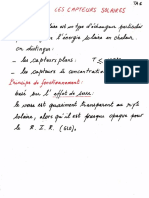 LES CAPTEURS SOLAIRES
est un type d'échangeur particulier
l'énergie solaire en chaleur.
on distingue:
- les capteurs plans:
- les capteurs à concentration
Principe de fonctionnement:
basé sur l'effet de serre
le verre est quasiment transparent au
solaire, alors qu'il est presque opaque pour
le R.I.R.